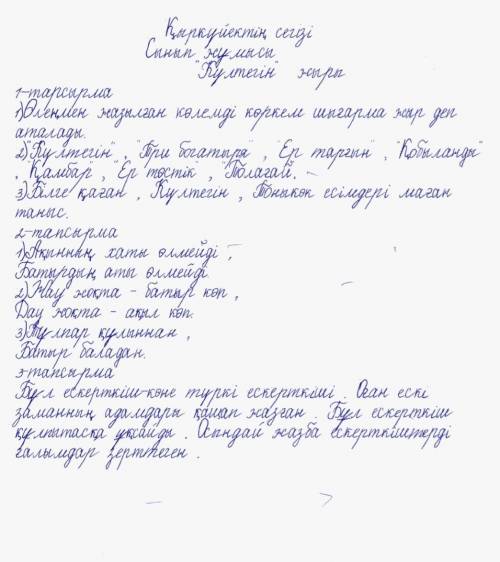 Қыркүйектің сегізі
Сынып жұмысы
"Күлтегін" жыры
1-тарсырма
1) Өлеңмен жазылған көлемді көркем шығарма жыр деп
аталады.
2) "Күлтегін", "Три богатыря", "Ер тарғын", "Қобыланды"
, "Қамбар", "Ер төстік", "Толағай.
3) Білге қаған, Күлтегін, Тоныкөк есімдері маған
таныс.
2-тапсырма
1) Ақынның хаты өлмейді,
Батырдың аты өлмейді.
2) Жау жоқта - батыр көп,
Дау жоқта - ақыл көп.
3) Тұлпар құлыннан,
Батыр баладан.
3-тапсырма
Бұл ескерткіш-көне түркі ескерткіші. Оған ескі
заманның адамдары қашап жазған. Бұл ескерткіш
құлпытасқа ұқсайды. Осындай жазба ескерткіштерді
ғалымдар зерттеген.